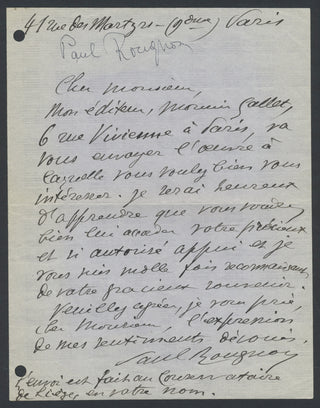 41 rue des Martyrs - (9ème) Paris
Paul Rougnon
Cher Monsieur,
Mon éditeur, Monsieur Gallet,
6 rue Vivienne à Paris, va
vous envoyer l'œuvre à
laquelle vous voulez bien vous
intéresser. Je serai heureux
d'apprendre que vous voudrez
bien lui accorder votre précieux
et si autorisé appui et je
vous suis mille fois reconnaissant
de votre gracieux souvenir.
Veuillez agréer, je vous prie,
cher Monsieur, l'expression
de mes sentiments dévoués.
Paul Rougnon
L'envoi est fait au Conservatoire
de Liège, en votre nom.